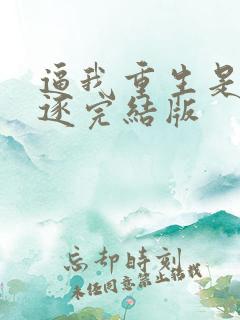 逼我重生是
逐完結版
忘却時刻
未经同意禁止转载